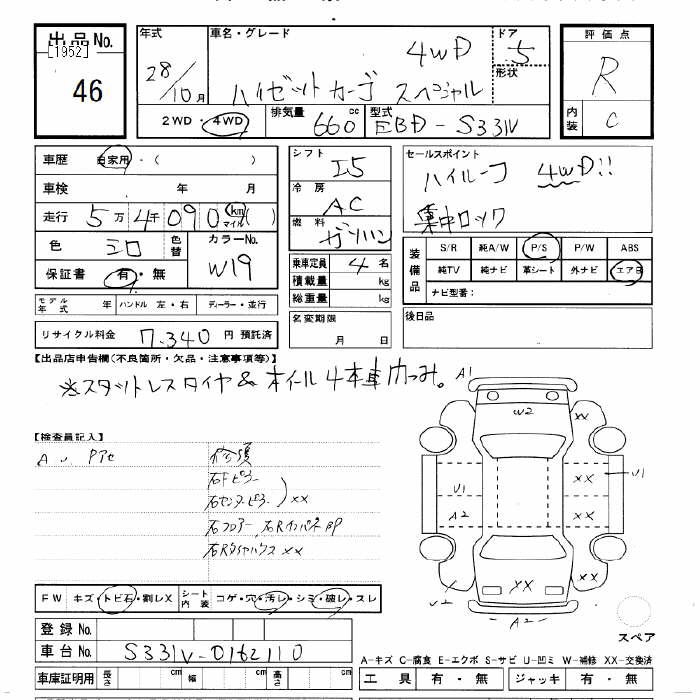 出品No.
[1952]
46
年式
28/10月
車名・グレード
4WD
ハイゼットカーゴ スペシャル
ドア
5
形状
評価点
R
内装
C
2WD・4WD
排気量
660 cc
型式
EBD-S331V
車歴
自家用・( )
車検 年 月
走行 5万4千090 km マイル( )
色 シロ
色替
カラーNo.
W19
保証書 有・無
モデル年式 年 ハンドル 左・右 ディーラー・並行
リサイクル料金 7.340 円 預託済
シフト
I5
冷房
AC
燃料
ガソリン
乗車定員 4 名
積載量 kg
総重量 kg
名変期限
月 日
セールスポイント
ハイルーフ 4WD!!
集中ロック
装備品
S/R 純A/W P/S P/W ABS
純TV 純ナビ 革シート 外ナビ エアB
ナビ型番:
後日品
【出品店申告欄(不良箇所・欠品・注意事項等)】
※スタットレスタイヤ&ホイール4本車内つみ。
【検査員記入】
修須
石Fピラー
石センターピラー
XX
石フロアー、石Rインパネ BP
石Rタイヤハウス XX
FW キズ・トビ石・割レX
シート内装 コゲ・穴・汚レ・シミ・破レ・スレ
登録No.
車台No. S331V-0162110
車庫証明用 長さ cm 幅 cm 高さ cm
A1
W2
XX
U1
XX
U1
A2
XX
XX
A2
スペア
A-キズ C-腐食 E-エクボ S-サビ U-凹ミ W-補修 XX-交換済
工具 有・無 ジャッキ 有・無